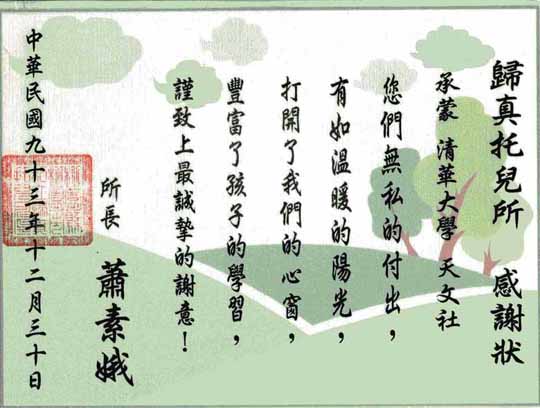 歸真托兒所 感謝狀
承蒙 清華大學 天文社
您們無私的付出，
有如溫暖的陽光，
打開了我們的心窗，
豐富了孩子的學習，
謹致上最誠摯的謝意！
所長 蕭素娥
中華民國九十三年十二月三十日